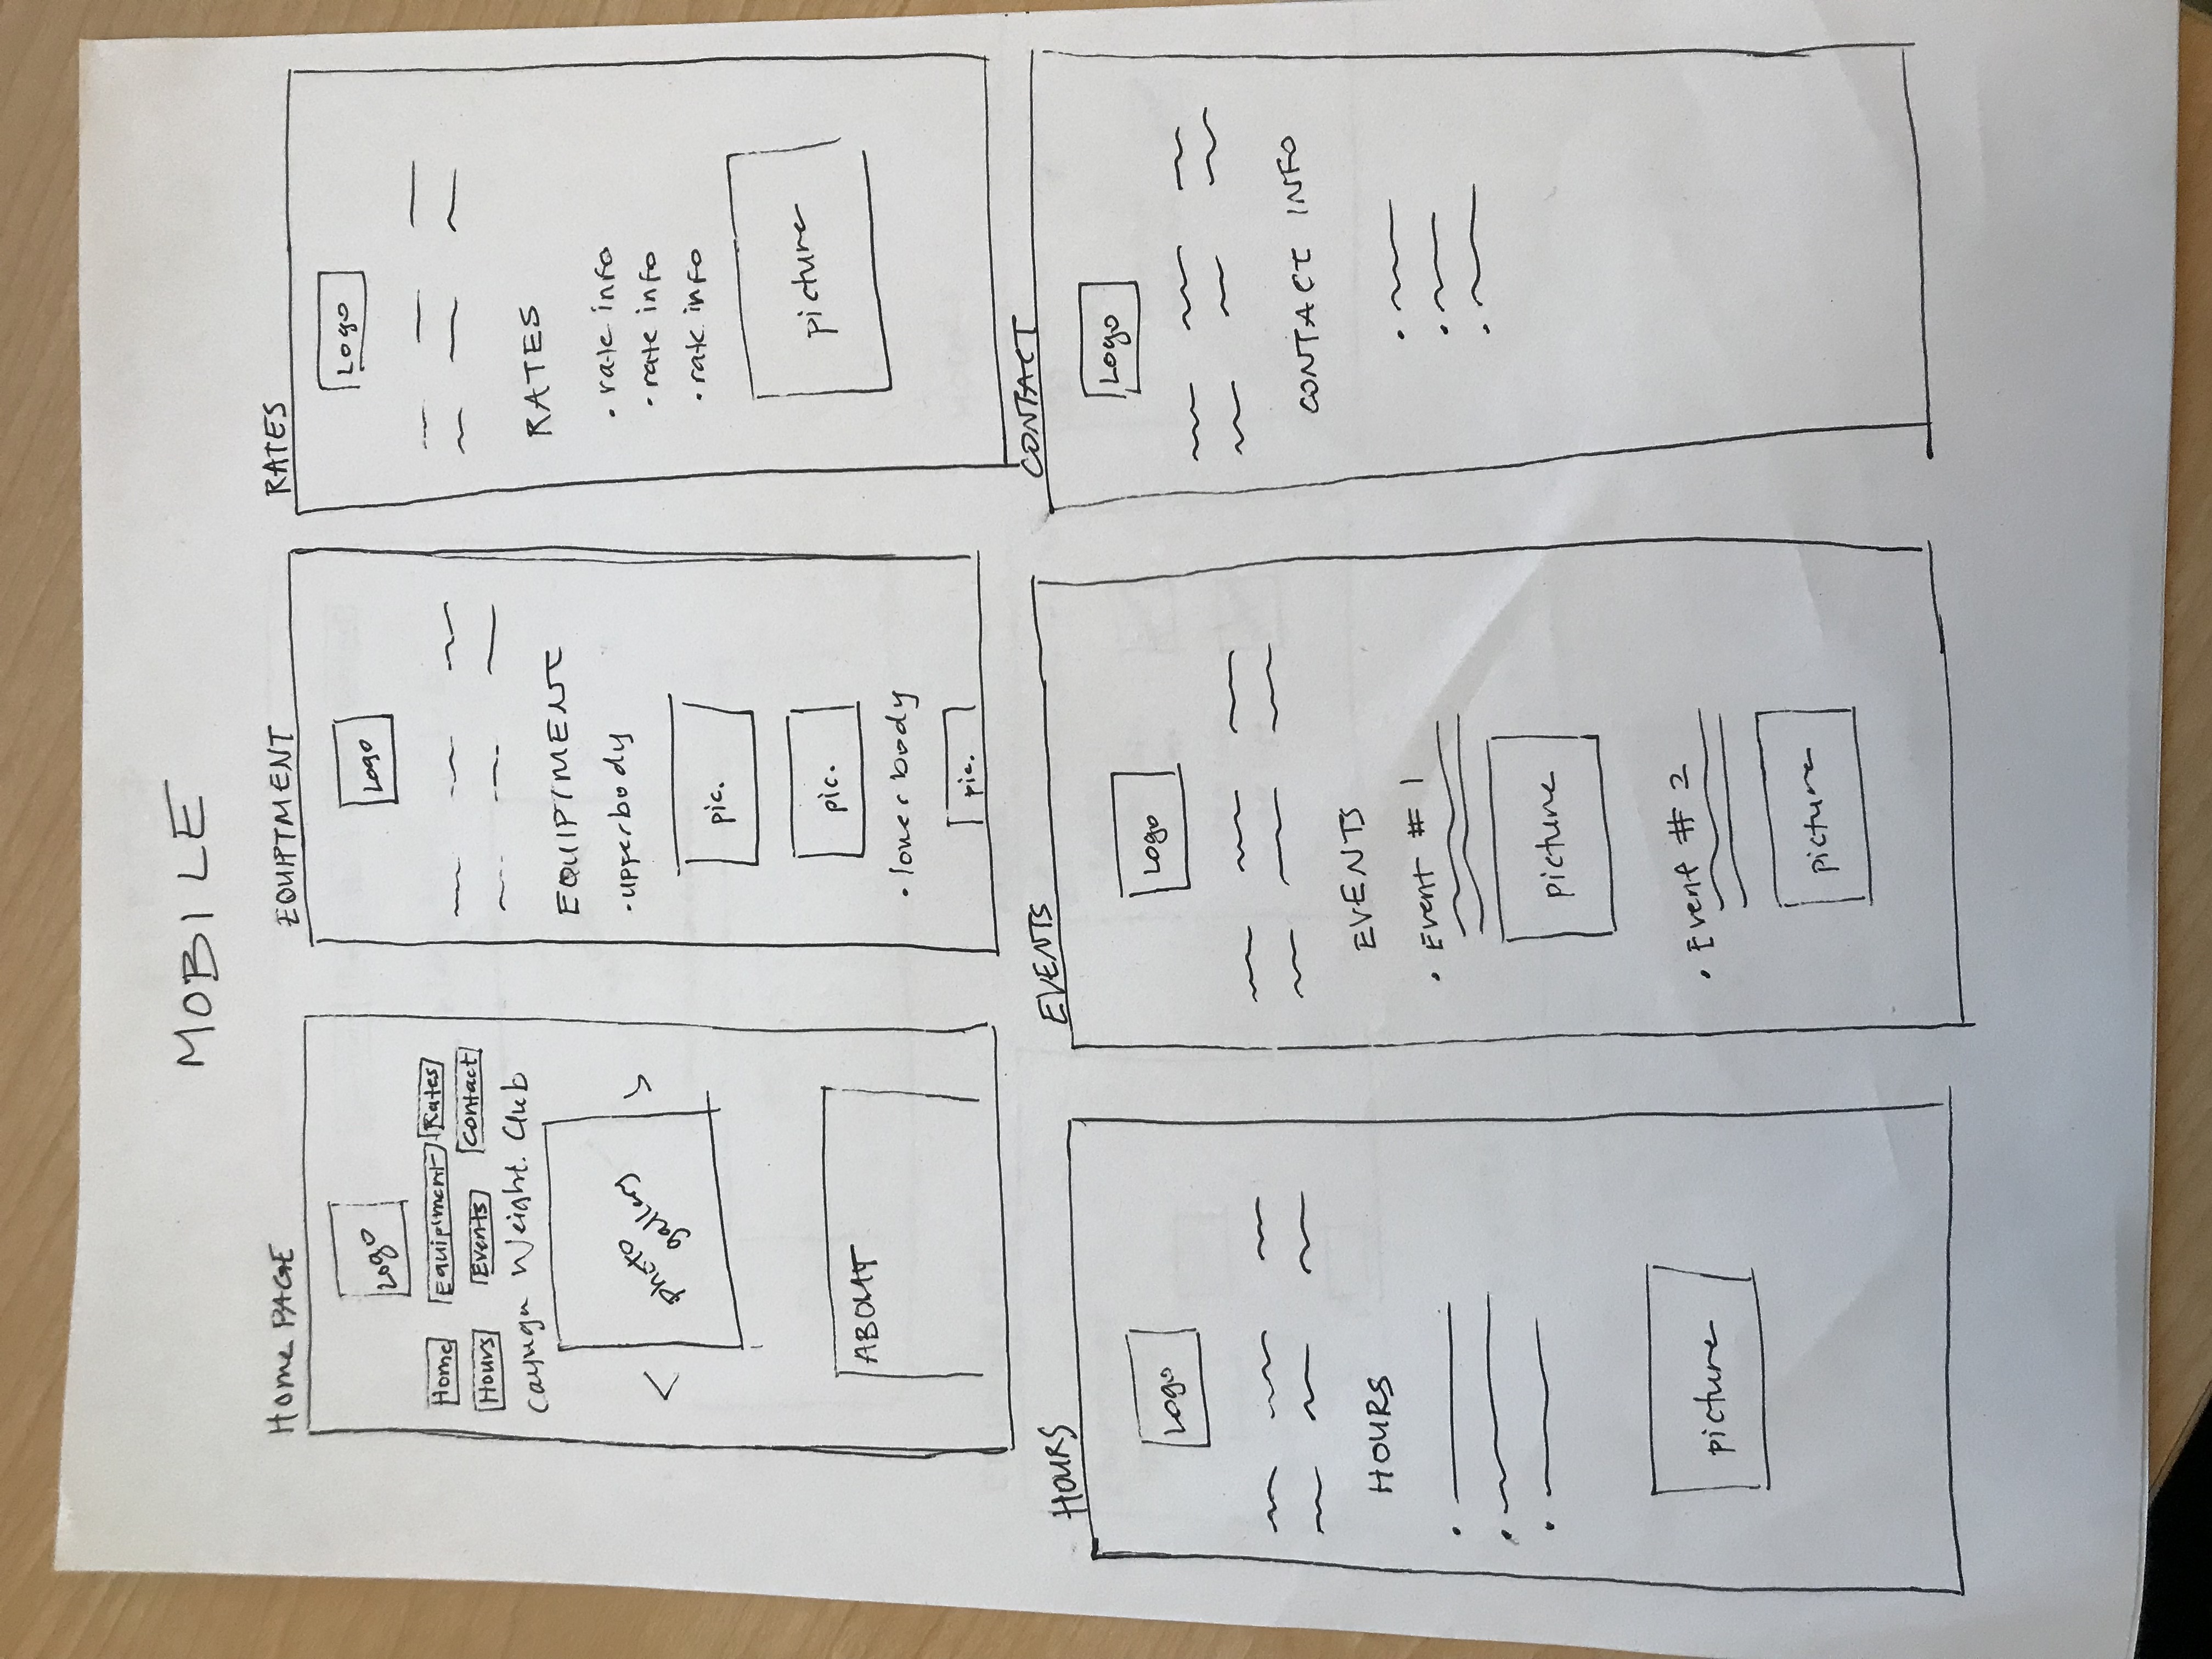 MOBILE
Home PAGE
Logo
Home Equiptment Rates
Hours Events Contact
Cayuga Weight. Club
< photo gallery >
ABOUT
EQUIPTMENT
Logo
EQUIPTMENT
• upperbody
pic.
pic.
• lower body
pic.
RATES
Logo
RATES
• rate info
• rate info
• rate info
picture
HOURS
Logo
HOURS
picture
EVENTS
Logo
EVENTS
• Event # 1
picture
• Event # 2
picture
CONTACT
Logo
CONTACT INFO